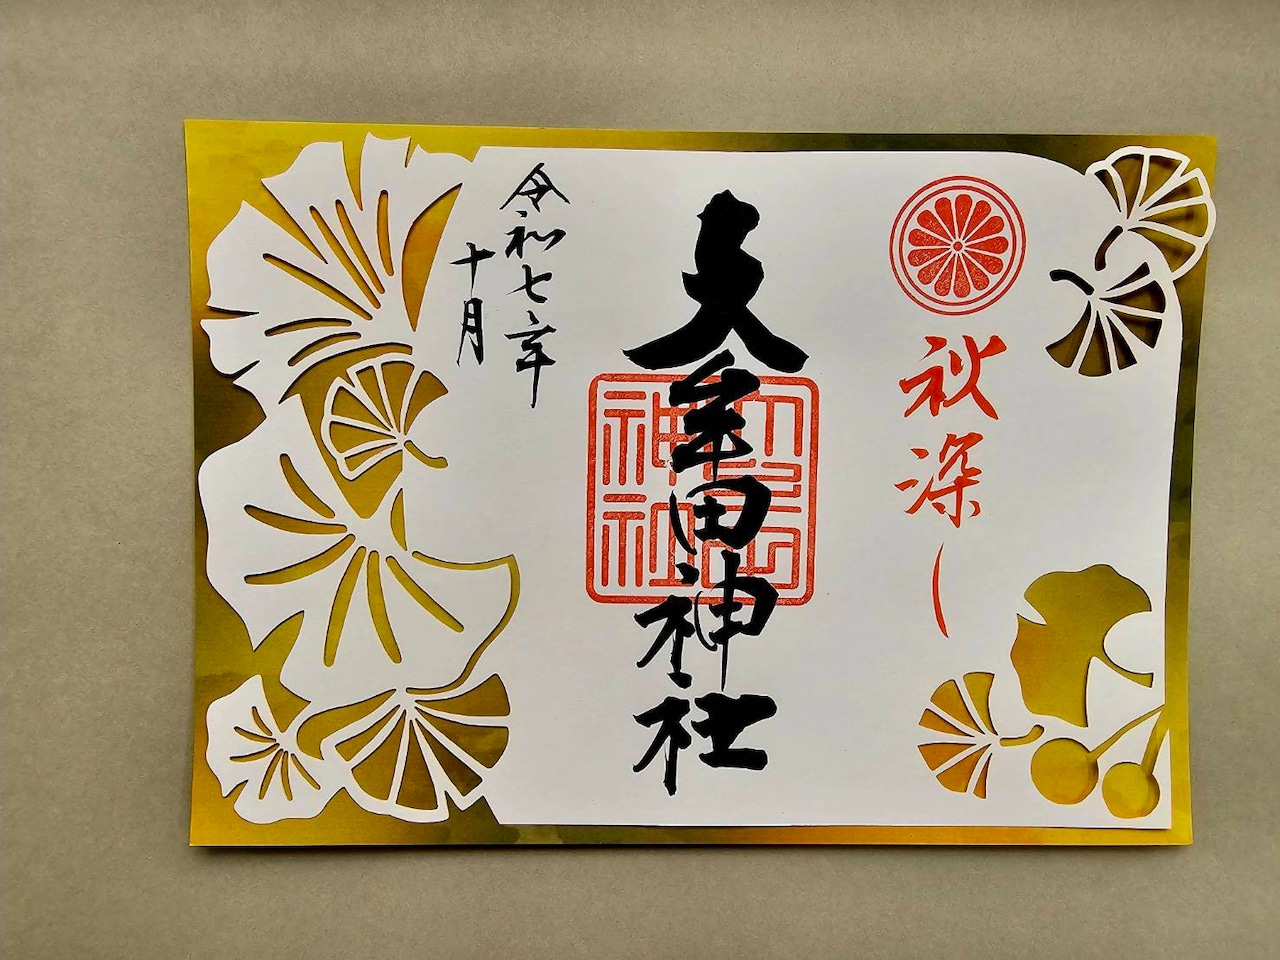 秋深し
大牟田神社
令和七年
十月